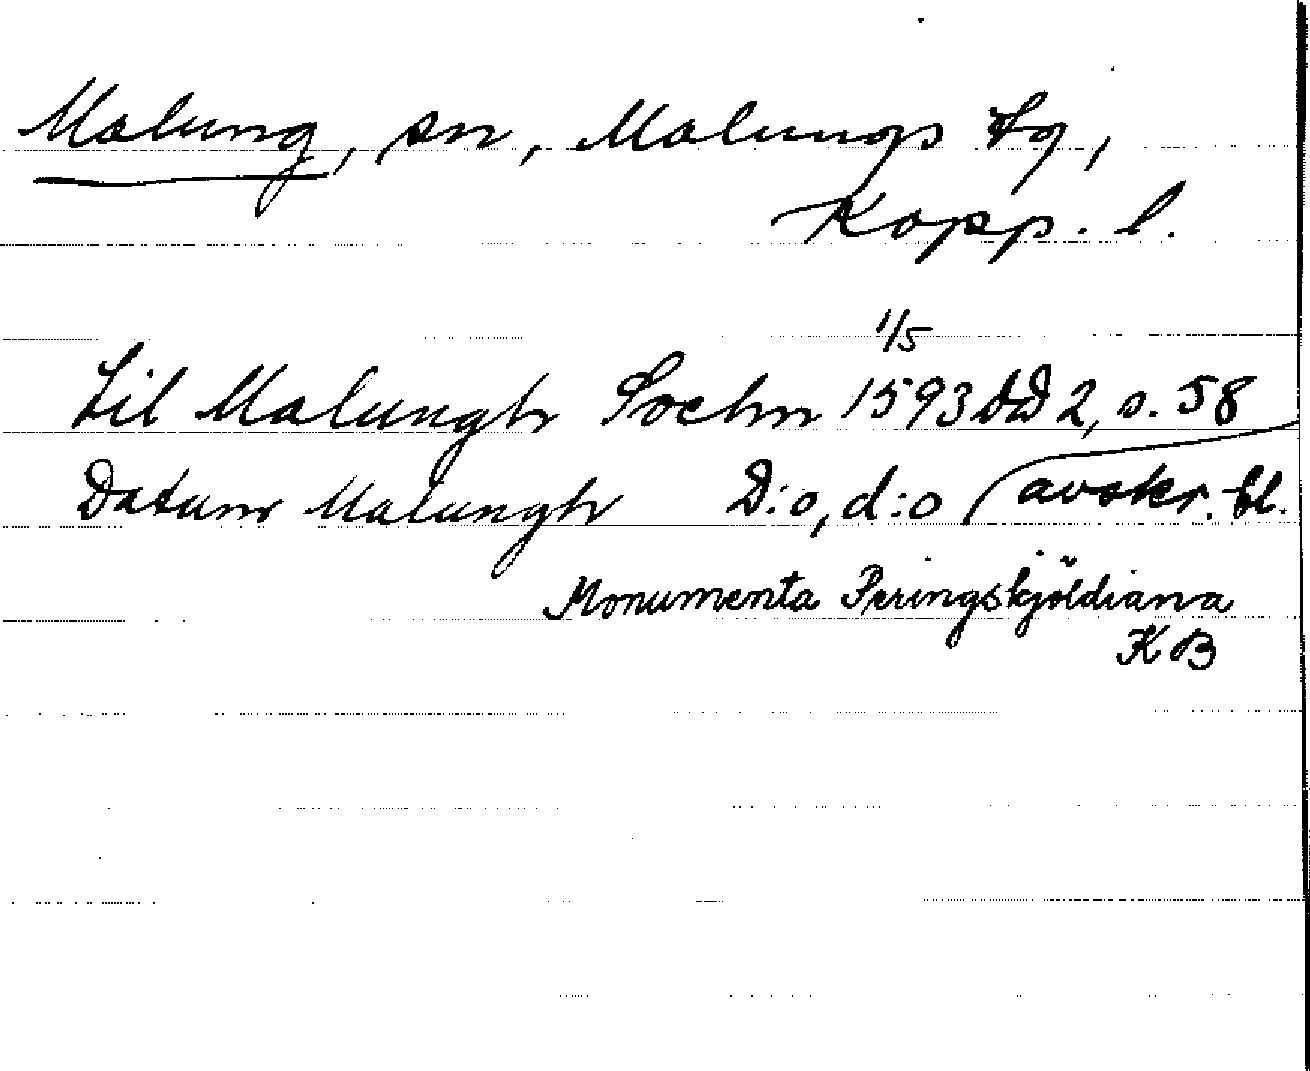 Malung, sn, Malungs tg,
Kopp. l.
1/5
Til Malungh Sochn 1593 DD 2, s. 58
Datum Malungh D:o, d:o (avskr. bl.
Monumenta Peringskjöldiana
KB